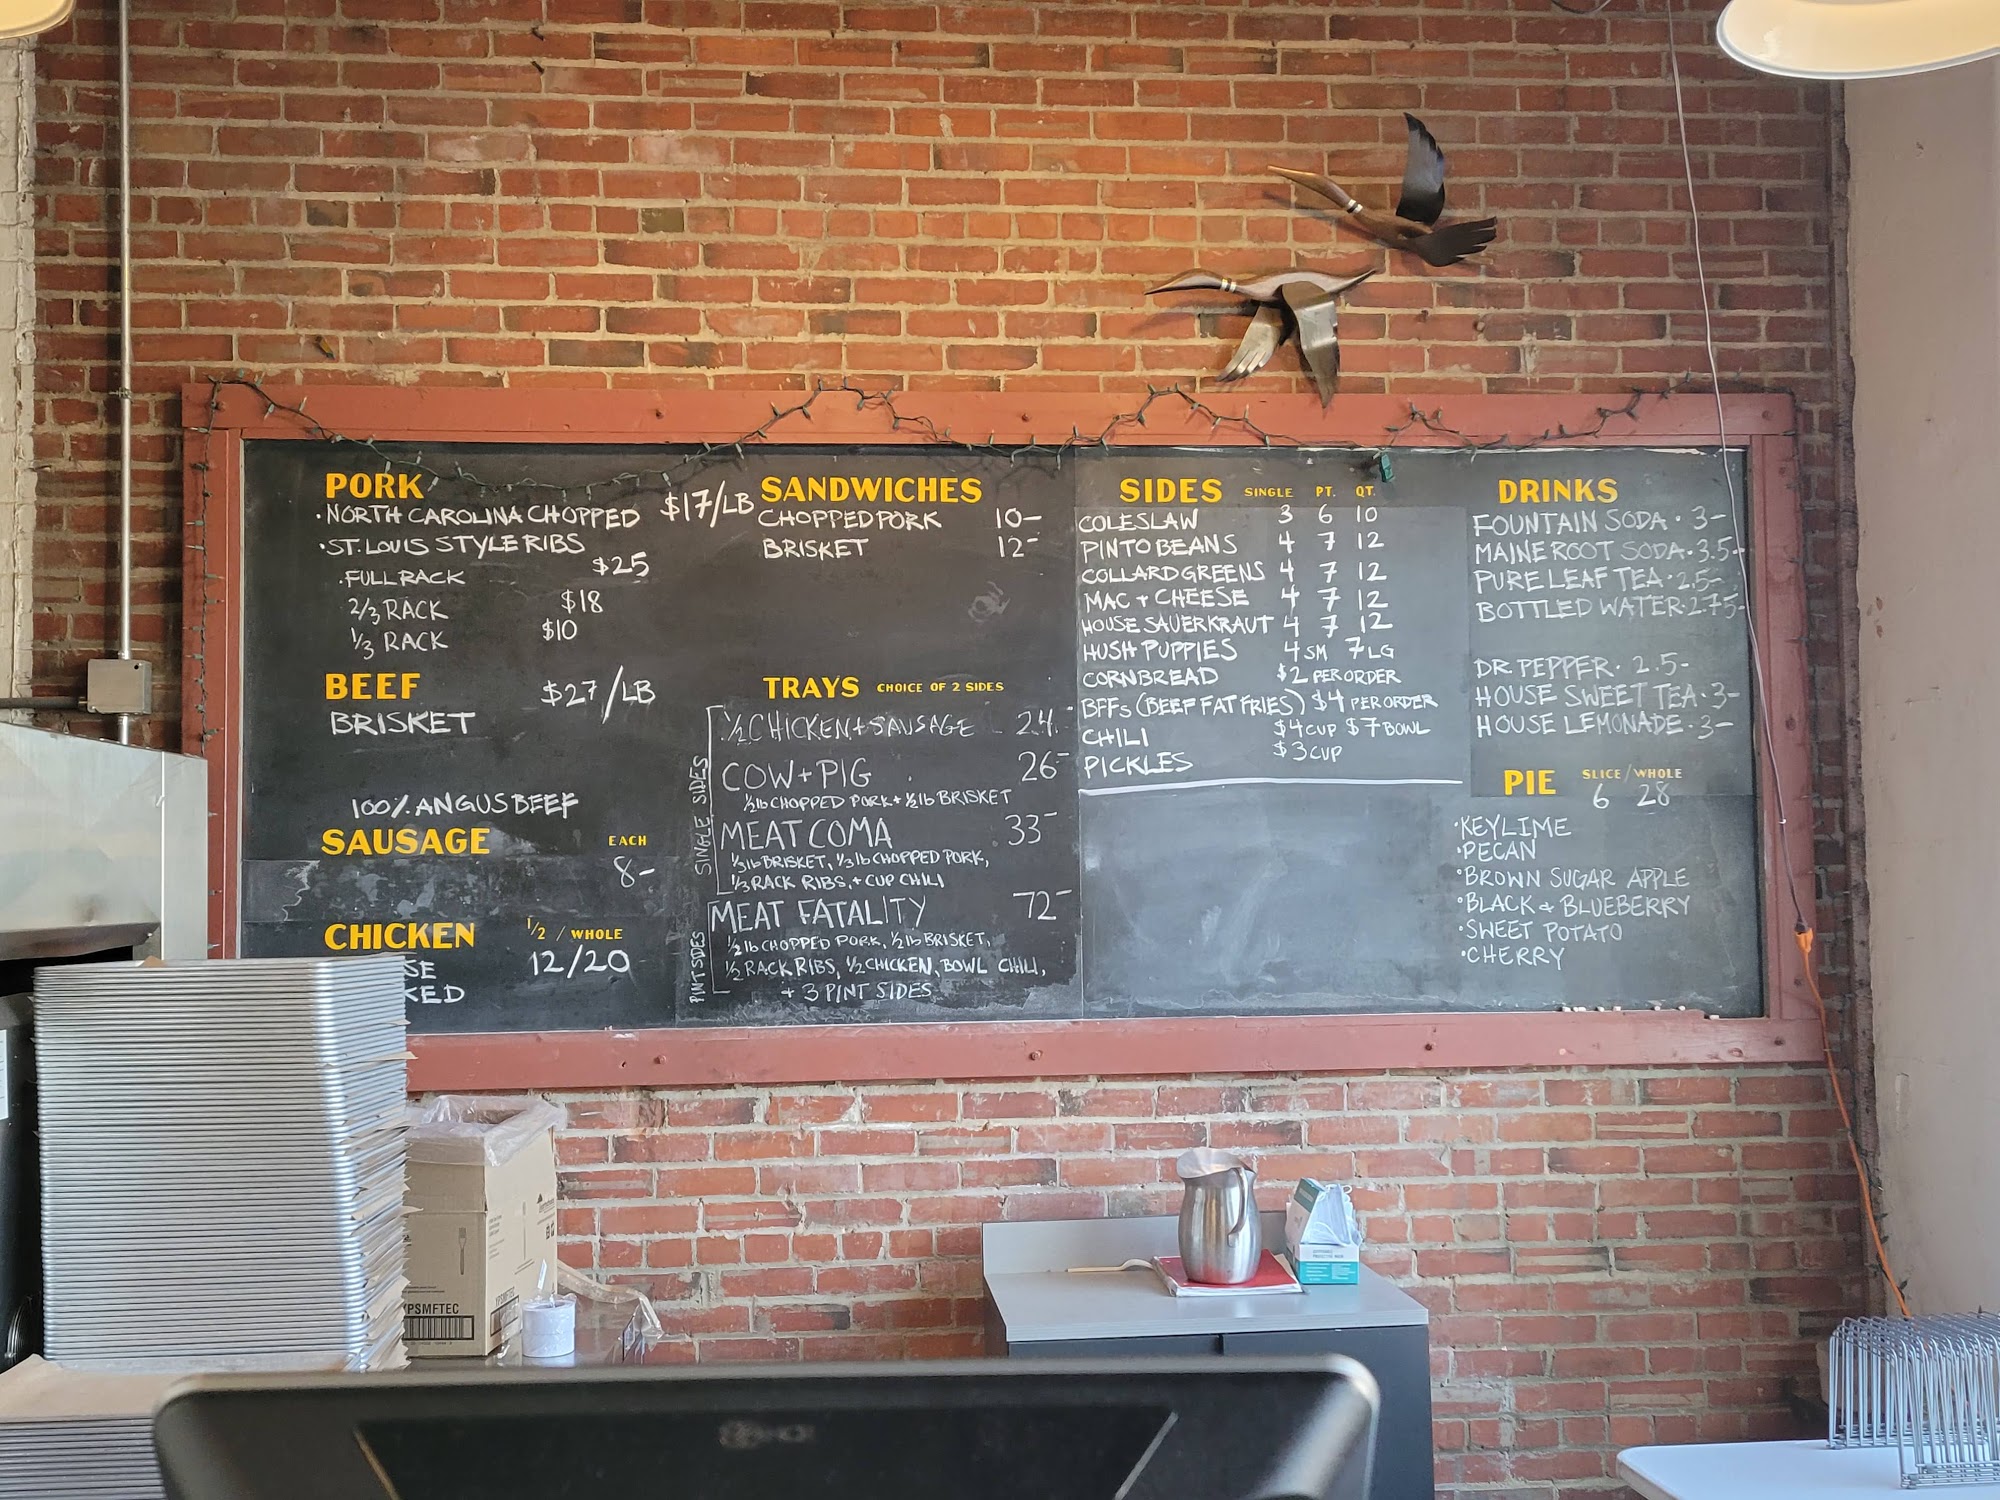 PORK
·NORTH CAROLINA CHOPPED $17/LB
·ST. LOUIS STYLE RIBS
·FULL RACK $25
2/3 RACK $18
1/3 RACK $10
BEEF $27/LB
BRISKET
100% ANGUS BEEF
SAUSAGE EACH
8-
CHICKEN 1/2 / WHOLE
12/20
SE
KED
SANDWICHES
CHOPPED PORK 10-
BRISKET 12-
TRAYS CHOICE OF 2 SIDES
SINGLE SIDES
1/2 CHICKEN + SAUSAGE 24.
COW + PIG 26-
1/2 lb CHOPPED PORK + 1/2 lb BRISKET
MEAT COMA 33-
1/3 lb BRISKET, 1/3 lb CHOPPED PORK,
1/3 RACK RIBS, + CUP CHILI
PINT SIDES
MEAT FATALITY 72-
1/2 lb CHOPPED PORK, 1/2 lb BRISKET,
1/2 RACK RIBS, 1/2 CHICKEN, BOWL CHILI,
+ 3 PINT SIDES
SIDES SINGLE PT. QT.
COLESLAW 3 6 10
PINTO BEANS 4 7 12
COLLARD GREENS 4 7 12
MAC + CHEESE 4 7 12
HOUSE SAUERKRAUT 4 7 12
HUSH PUPPIES 4 SM 7 LG
CORNBREAD $2 PER ORDER
BFFs (BEEF FAT FRIES) $4 PER ORDER
CHILI $4 CUP $7 BOWL
PICKLES $3 CUP
DRINKS
FOUNTAIN SODA · 3-
MAINE ROOT SODA · 3.5-
PURE LEAF TEA · 2.5-
BOTTLED WATER · 2.75-
DR. PEPPER · 2.5-
HOUSE SWEET TEA · 3-
HOUSE LEMONADE · 3-
PIE SLICE / WHOLE
6 28
·KEYLIME
·PECAN
·BROWN SUGAR APPLE
·BLACK + BLUEBERRY
·SWEET POTATO
·CHERRY
YPSMFTEC